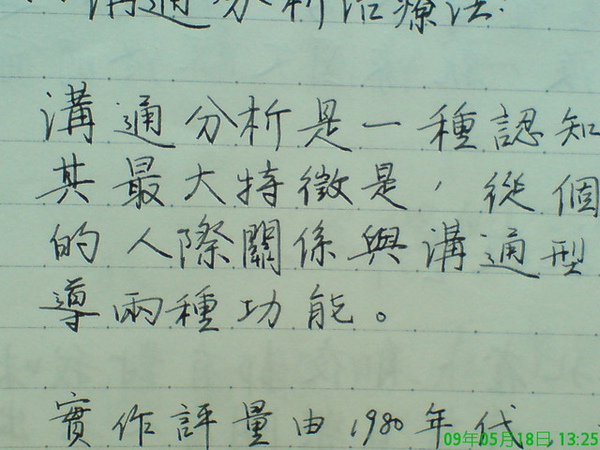 溝通分析治療法.
溝通分析是一種認知
其最大特徵是,從個
的人際關係與溝通型
導兩種功能。
實作評量由1980年代,
09年05月18日 13:25